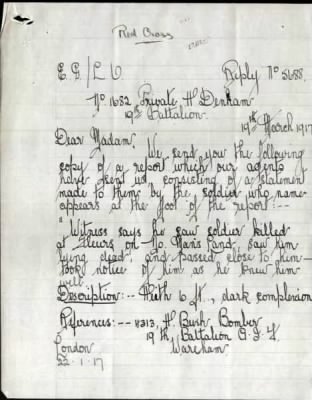 Red Cross
E.G./L O
Reply No 5688.
No 1682 Private H Denham
19th Battalion.
19th March 1917
Dear Madam,
We send you the following
copy of a report which our agents
have sent us, consisting of a statement
made to them by the soldier who name
appears at the foot of the report :--
"Witness says he saw soldier killed
at Fleurs on No. Man's Land, saw him
lying dead, and passed close to him-
took notice of him as he knew him
well.
Description:-- Hieth 6 ft., dark complexion
References:-- 4313, H. Bush Bomber
19 th, Battalion A.I.F
London Wareham
22-1-17